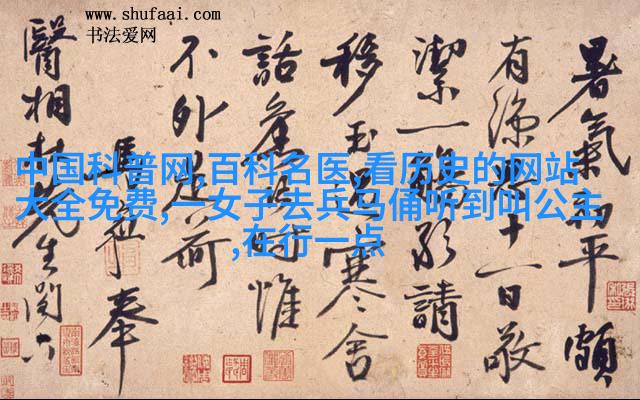 www.shufaai.com
书法爱网
中国科普网,百科名医,看历史的网站
大全免费,一女子去兵马俑听到叫公主
,在行一点
暑氣初平頗
有涼十一日敬
潔一請
移玉寒舍
話舊時惟
不外是荷
奉
醫相杜先生閣下